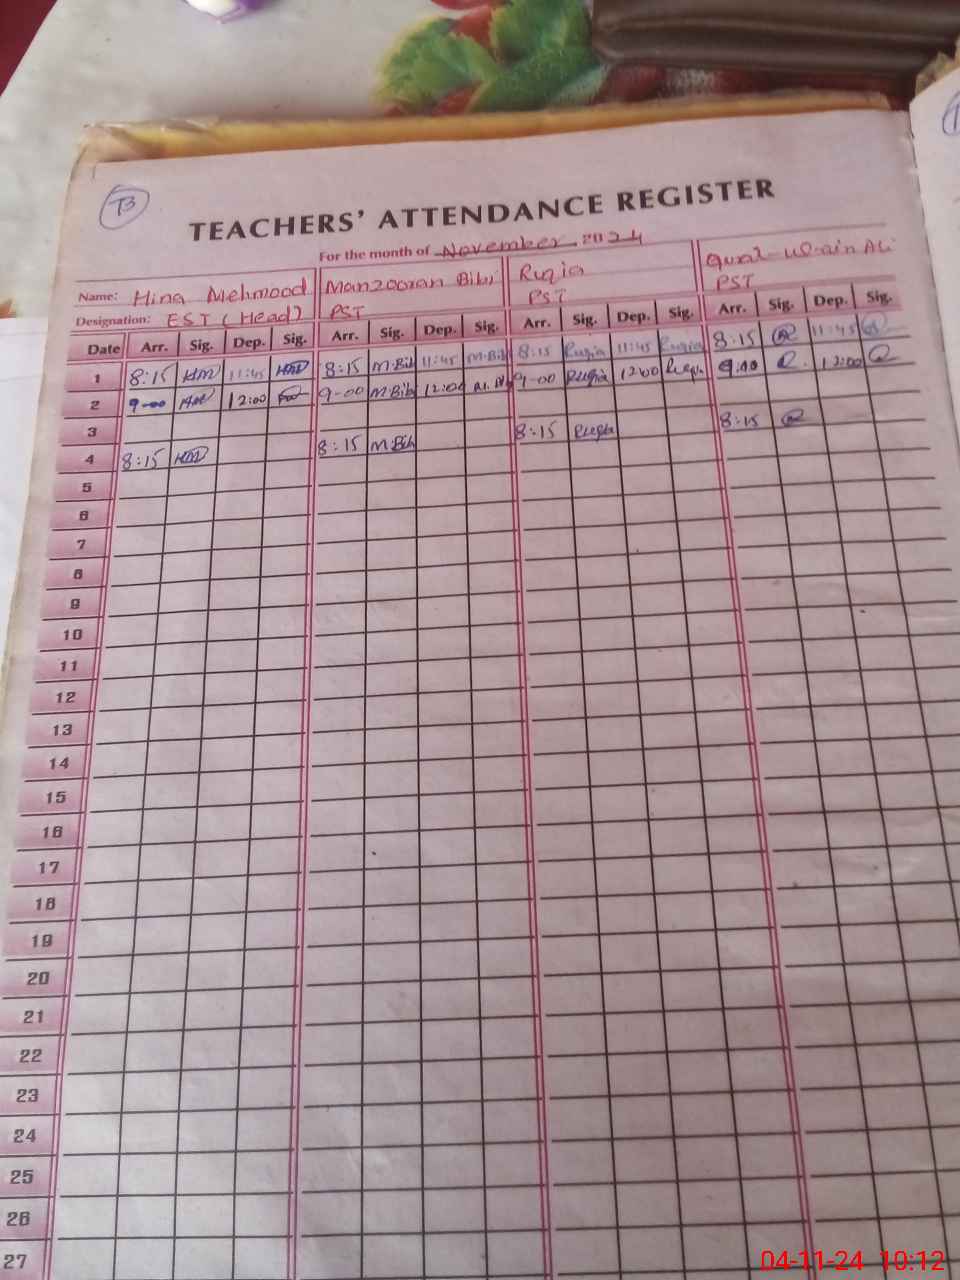 T3
TEACHERS' ATTENDANCE REGISTER
For the month of November 2024
Name: Hina Mehmood Manzooran Bibi Ruqia Qurat-ul-ain Ali
Designation: EST (Head) PST PST PST
Date Arr. Sig. Dep. Sig. Arr. Sig. Dep. Sig. Arr. Sig. Dep. Sig. Arr. Sig. Dep. Sig.
1 8:15 HM 11:45 HM 8:15 M.Bibi 11:45 M.Bibi 8:15 Ruqia 11:45 Ruqia 8:15 11:45
2 9-00 HM 12:00 9-00 M Bibi 12:00 9-00 Ruqia 12:00 Ruqia 9:00 12:00
3
4 8:15 HM 8:15 M Bibi 8:15 Ruqia 8:15
5
6
7
8
9
10
11
12
13
14
15
16
17
18
19
20
21
22
23
24
25
26
27
04-11-24 10:12